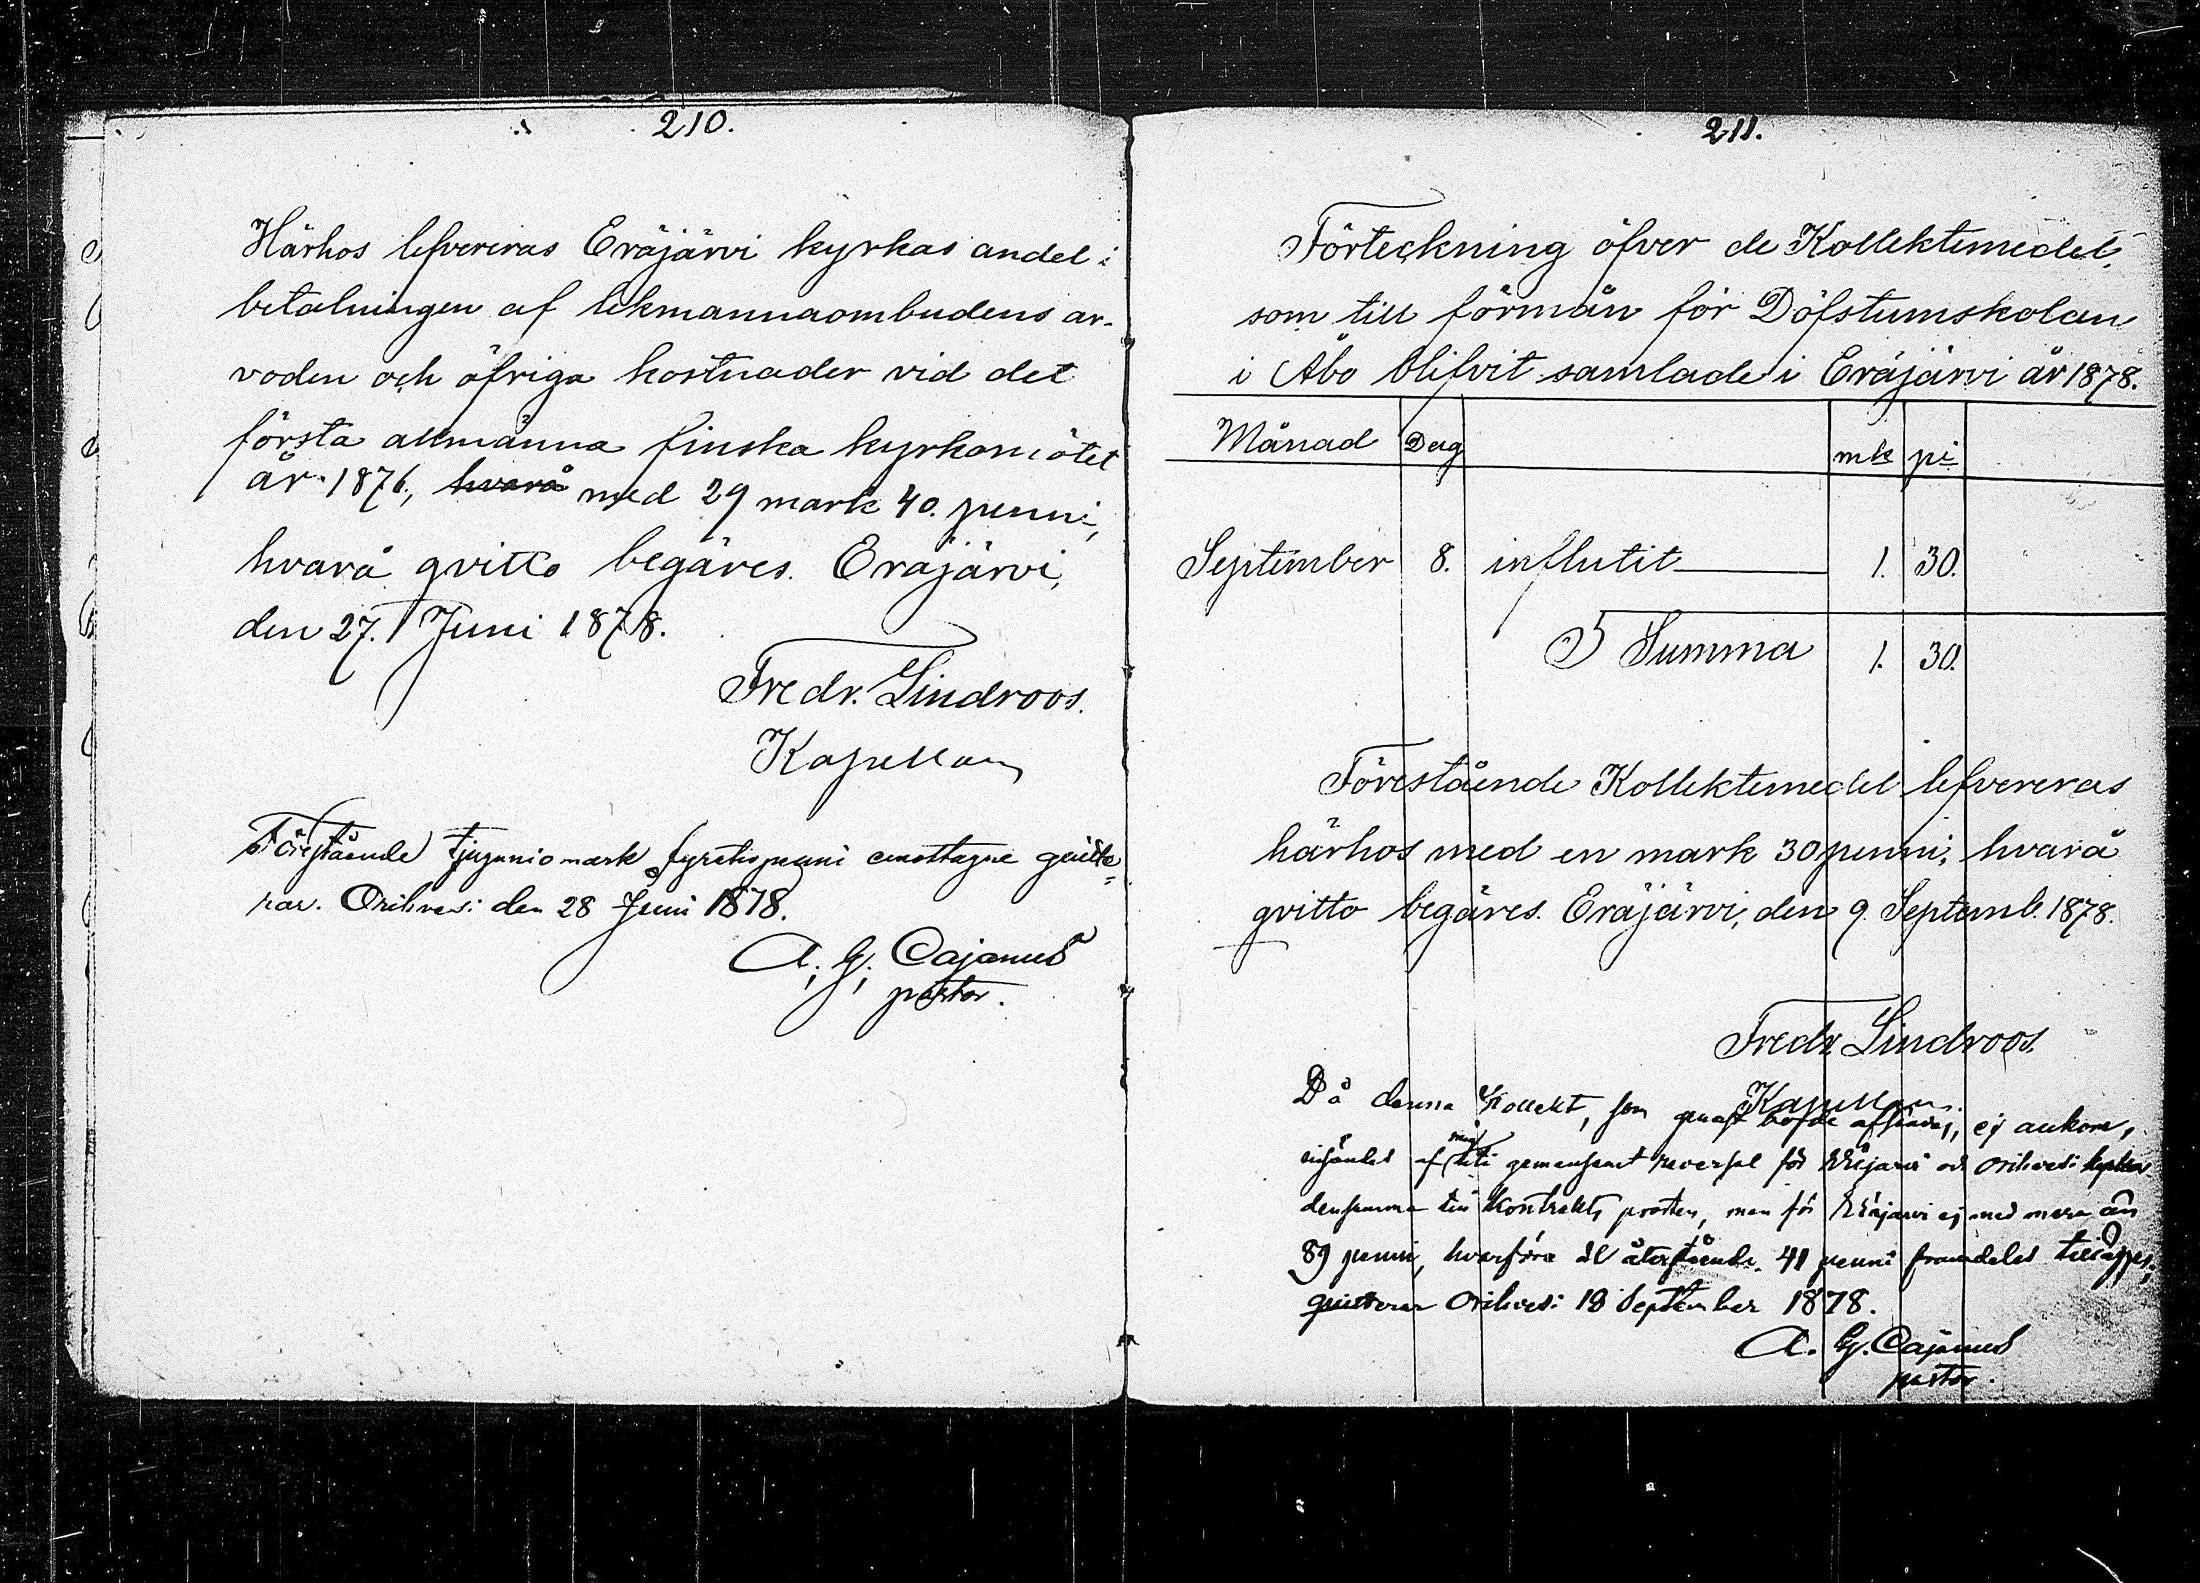 210.
Härhos lefvereras Eräjärvi kyrkas andel i
betalningen af lekmannaombudens ar-
voden och öfriga kostnader vid det
första allmänna finska kyrkomötet
år 1876, hvarå med 29 mark 40. penni,
hvarå qvitto begäres. Eräjärvi,
den 27. Juni 1878.
Fredr. Lindroos.
Kapellan
Förestående tjugunio mark fyratio penni emottagne quitte-
rar. Orihvesi den 28 Juni 1878.
A. G. Cajanus
pastor.
211.
Förteckning öfver de Kollektmedel,
som till förmån för Döfstumskolan
i Åbo blifvit samlade i Eräjärvi år 1878.
Månad Dag mk pi
September 8. influtit 1. 30.
S Summa 1. 30.
Förestående Kollektmedel lefvereras
härhos med en mark 30 penni, hvarå
qvitto begäres. Eräjärvi, den 9. Septemb. 1878.
Fredr. Lindroos.
Kapellan.
Då denna Kollekt, som genast borde afsändas, ej ankom,
insändes af mig uti gemensamt reversal för Eräjärvi och Orihvesi kyrkor
densamma till Kontrakts prosten, men för Eräjärvi ej med mera än
89 penni, hvarföre de återstående 41 penni framdeles tilläggas,
quitterar Orihvesi 18 September 1878.
A. G. Cajanus
pastor.